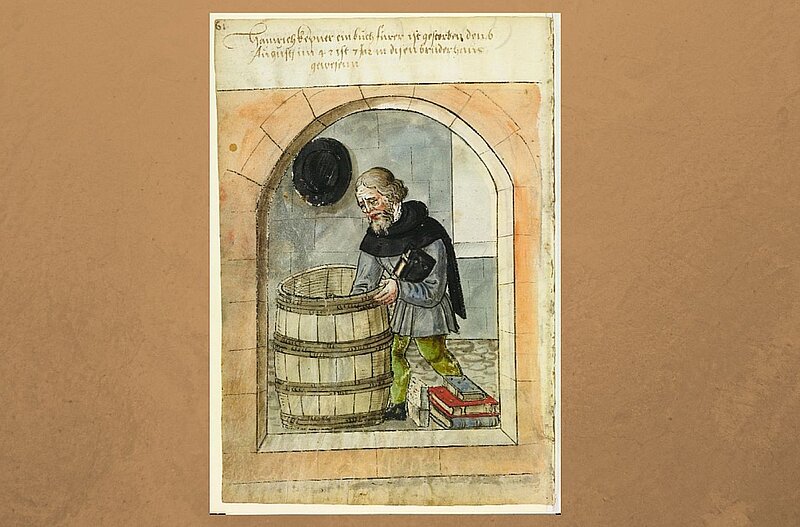 61
Hainrich kepner ein buch fürer ist gestorben den 6
Augustij im 4 ist Jar in disen bruder haus
gewesenn